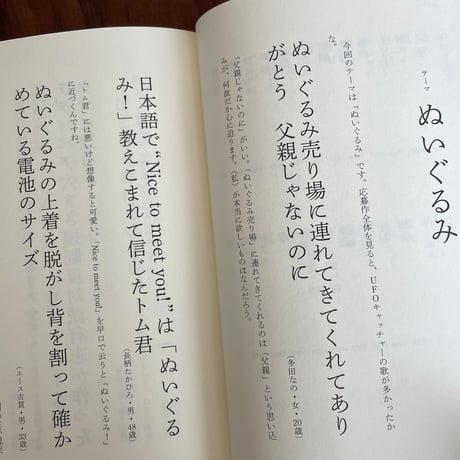 テーマ
ぬいぐるみ
今回のテーマは「ぬいぐるみ」です。応募作全体を見ると、UFOキャッチャーの歌が多かったか
な。
ぬいぐるみ売り場に連れてきてくれてあり
がとう 父親じゃないのに
(多田なの・女・20歳)
「父親じゃないのに」がいい。「ぬいぐるみ売り場」に連れてきてくれるのは「父親」という思い込
みが、何故だか心に迫ります。〈私〉が本当に欲しいものはなんだろう。
日本語で“Nice to meet you!”は「ぬいぐる
み!」教えこまれて信じたトム君
(長柄たかひろ・男・48歳)
「トム君」には悪いけど想像すると可愛い。「Nice to meet you!」を早口で云うと「ぬいぐるみ!」
に近づくんですね。
ぬいぐるみの上着を脱がし背を割って確か
めている電池のサイズ
(エース古賀・男・33歳)